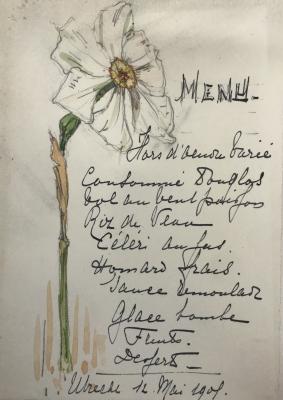 MENU.
Hors d'œuvre Varié
Consommé Douglas
Vol au vent pigeon
Riz de Veau
Céleri au jus.
Homard frais.
Sauce Remoulade
Glace bombe
Fruits.
Dessert
12 Mai 1905.